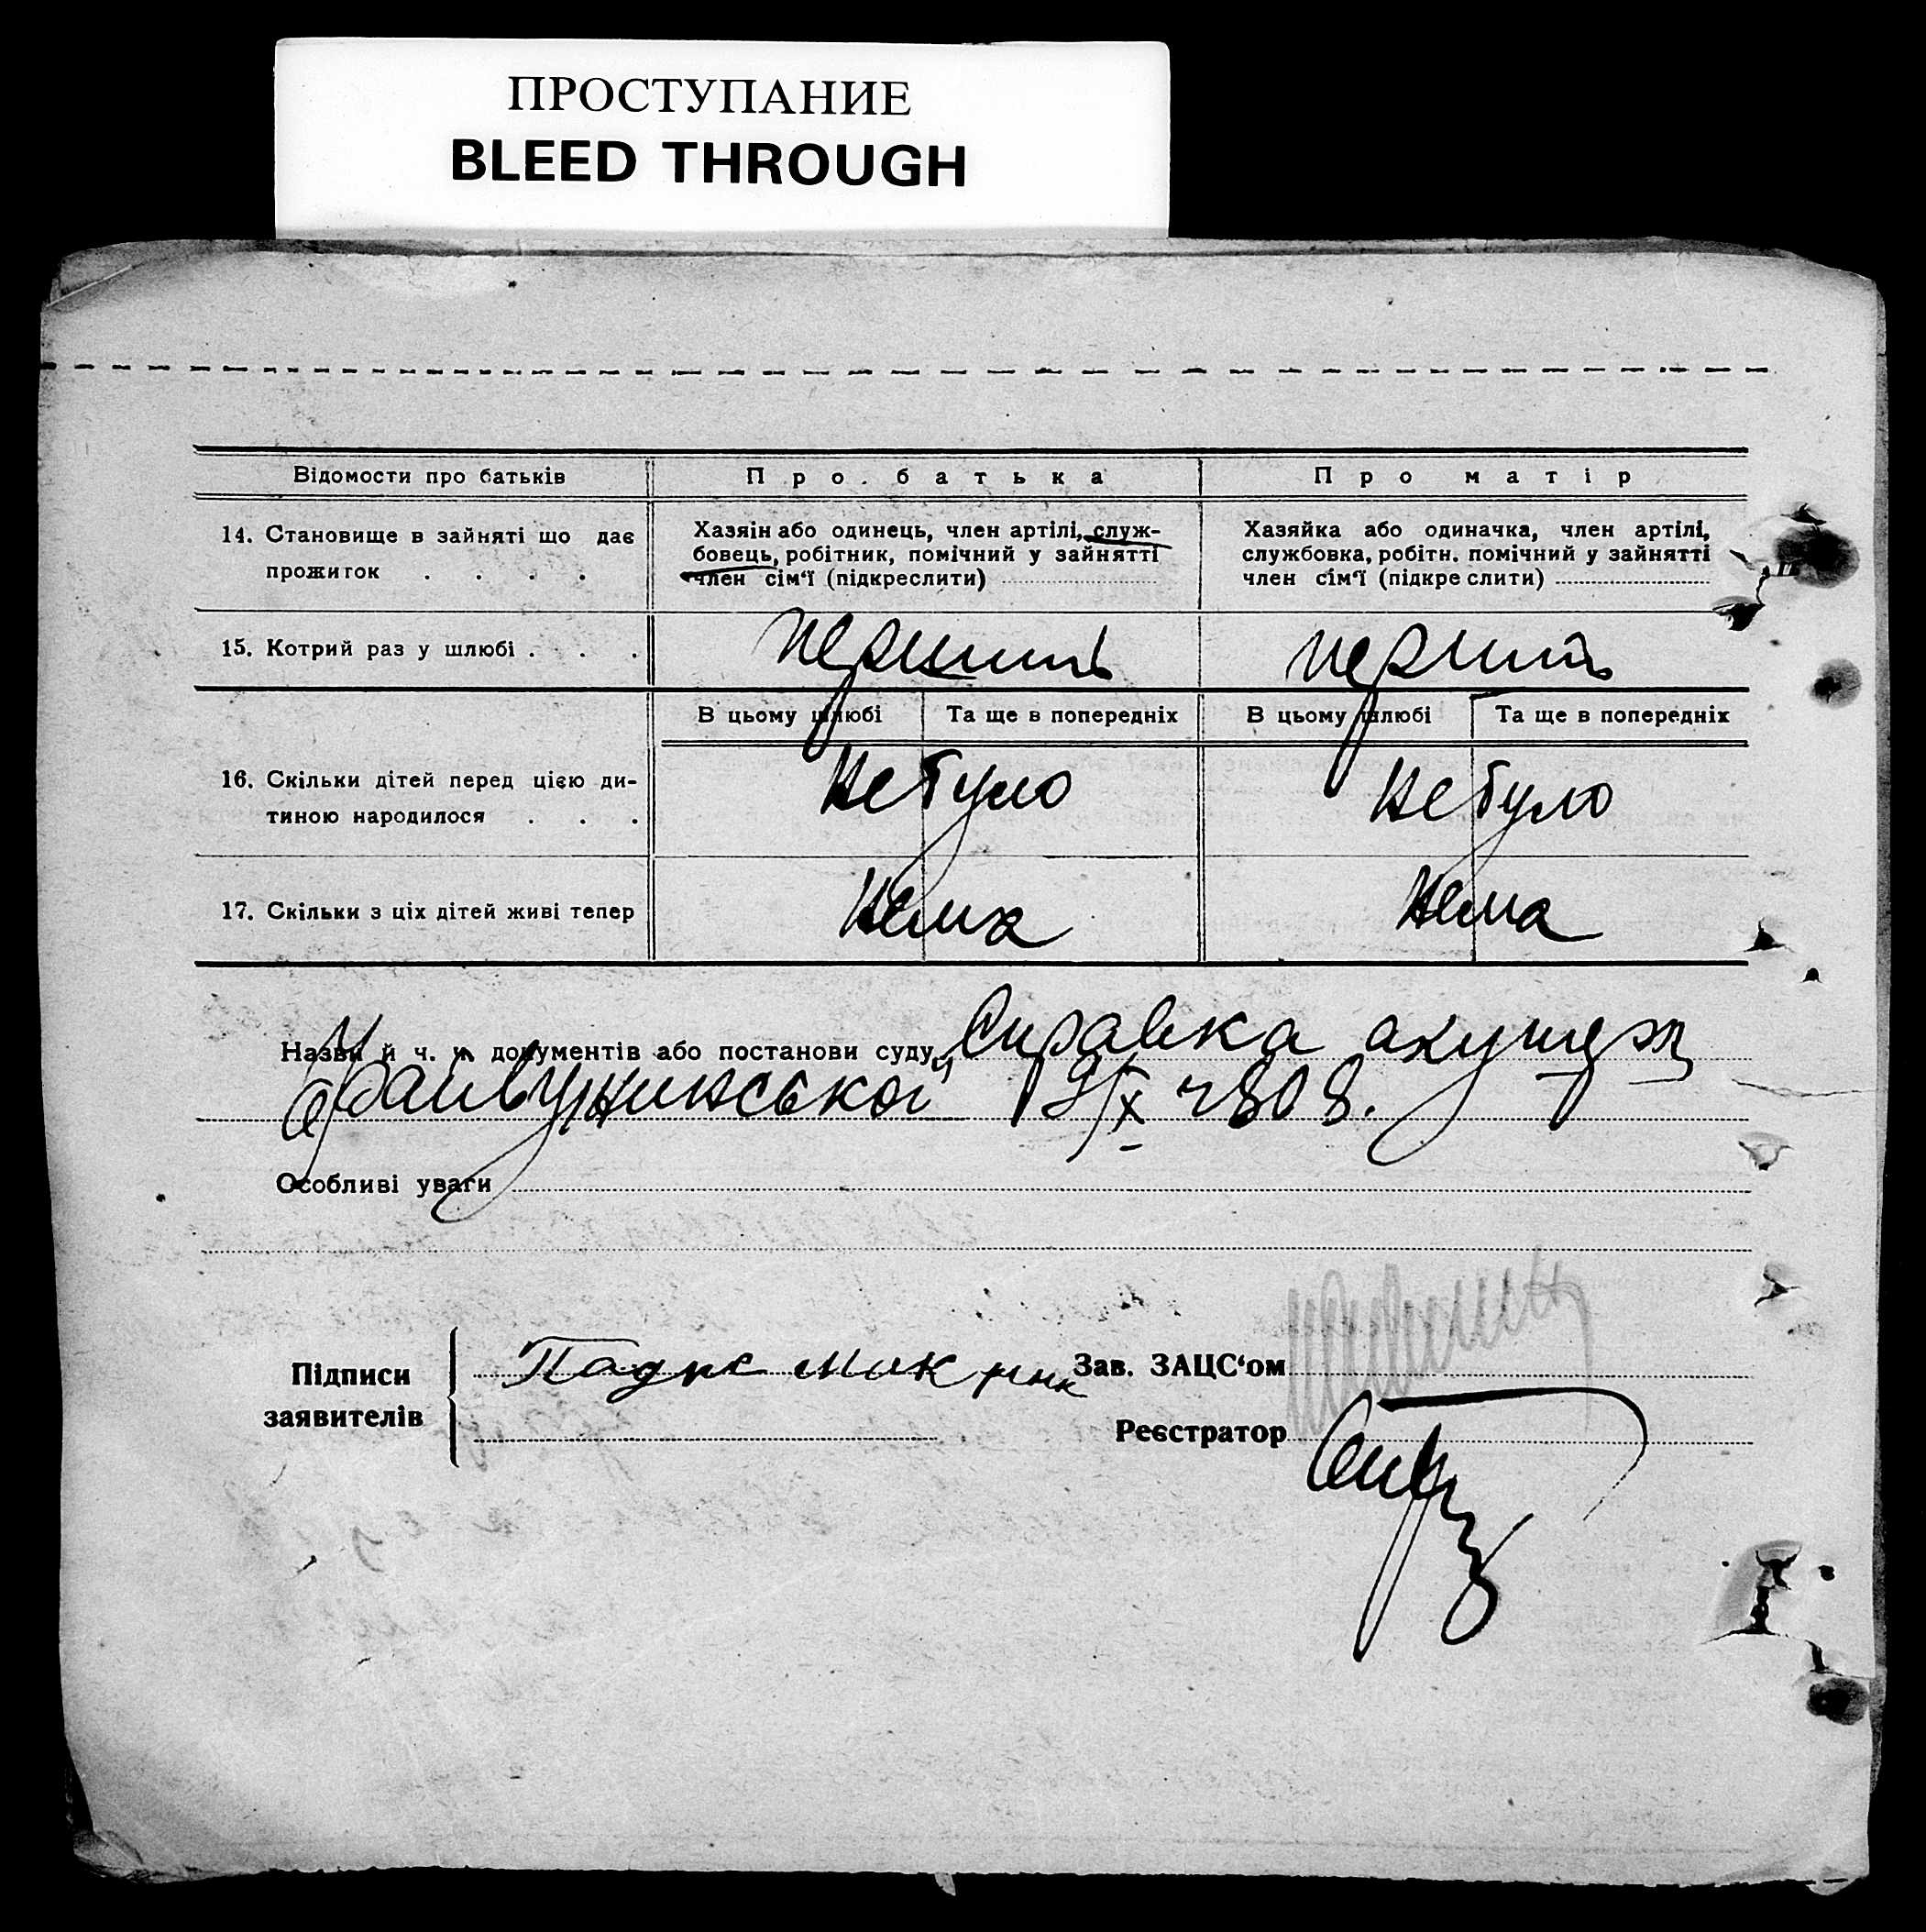 ПРОСТУПАНИЕ
BLEED THROUGH
Відомости про батьків
Про батька
Про матір
14. Становище в зайняті що дає
прожиток . . . .
Хазяін або одинець, член артілі, служ-
бовець, робітник, помічний у зайнятті
член сім‘ї (підкреслити)
Хазяйка або одиначка, член артілі,
службовка, робітн. помічний у зайнятті
член сім‘ї (підкреслити)
15. Котрий раз у шлюбі . . .
перший
перший
В цьому шлюбі
Та ще в попередніх
В цьому шлюбі
Та ще в попередніх
16. Скільки дітей перед цією ди-
тиною народилося . . .
Не було
Не було
17. Скільки з ціх дітей живі тепер
Нема
Нема
Назви й ч. ч. документів або постанови суду Справка акушер
Особливі уваги
Підписи
заявителів
Зав. ЗАЦС‘ом
Реєстратор